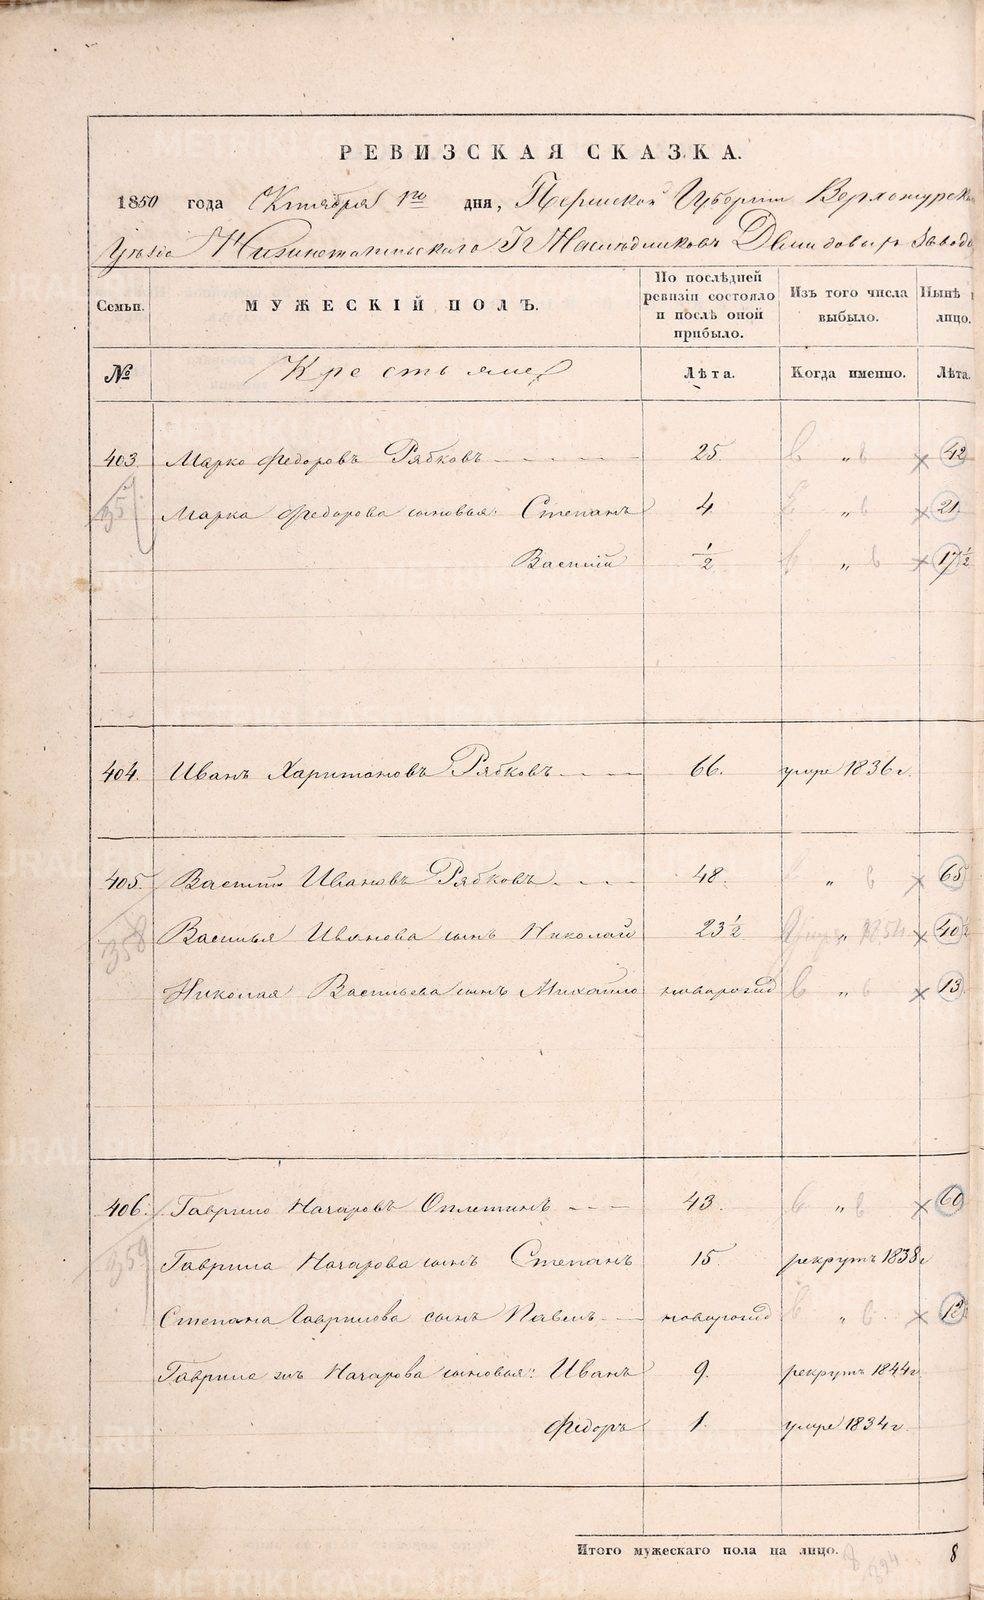 РЕВИЗСКАЯ СКАЗКА.
1850 года Октября 1го дня, Пермской Губернии Верхотурска
Уезда Нижнетагильскаго Гг Наследниковъ Демидовыхъ Заводъ
Семьи.
МУЖЕСКІЙ ПОЛЪ.
По послѣдней ревизіи состояло и послѣ оной прибыло.
Изъ того числа выбыло.
Нынѣ лицо.
№
Крестьяне
Лѣта.
Когда именно.
Лѣта.
403 Марко Федоровъ Рябковъ 25. „ 42
Марка Федорова сыновья: Степанъ 4 „ 21
Василій 1/2 „ 17 1/2
404. Иванъ Харитоновъ Рябковъ 66. умре 1836 г.
405. Василий Ивановъ Рябковъ 48. „ 65
358 Василья Иванова сынъ Николай 23 1/2 „ 40 1/2
Николая Васильева сынъ Михайло новорожд „ 13
406. Гаврило Назаровъ Оплетинъ 43. „ 60
359 Гаврила Назарова сынъ Степанъ 15. рекрутъ 1838 г
Степана Гаврилова сынъ Павелъ новорожд „ 12
Гаврила жъ Назарова сыновья: Иванъ 9. рекрутъ 1844 г
Федоръ 1. умре 1834 г.
Итого мужескаго пола на лицо. 8